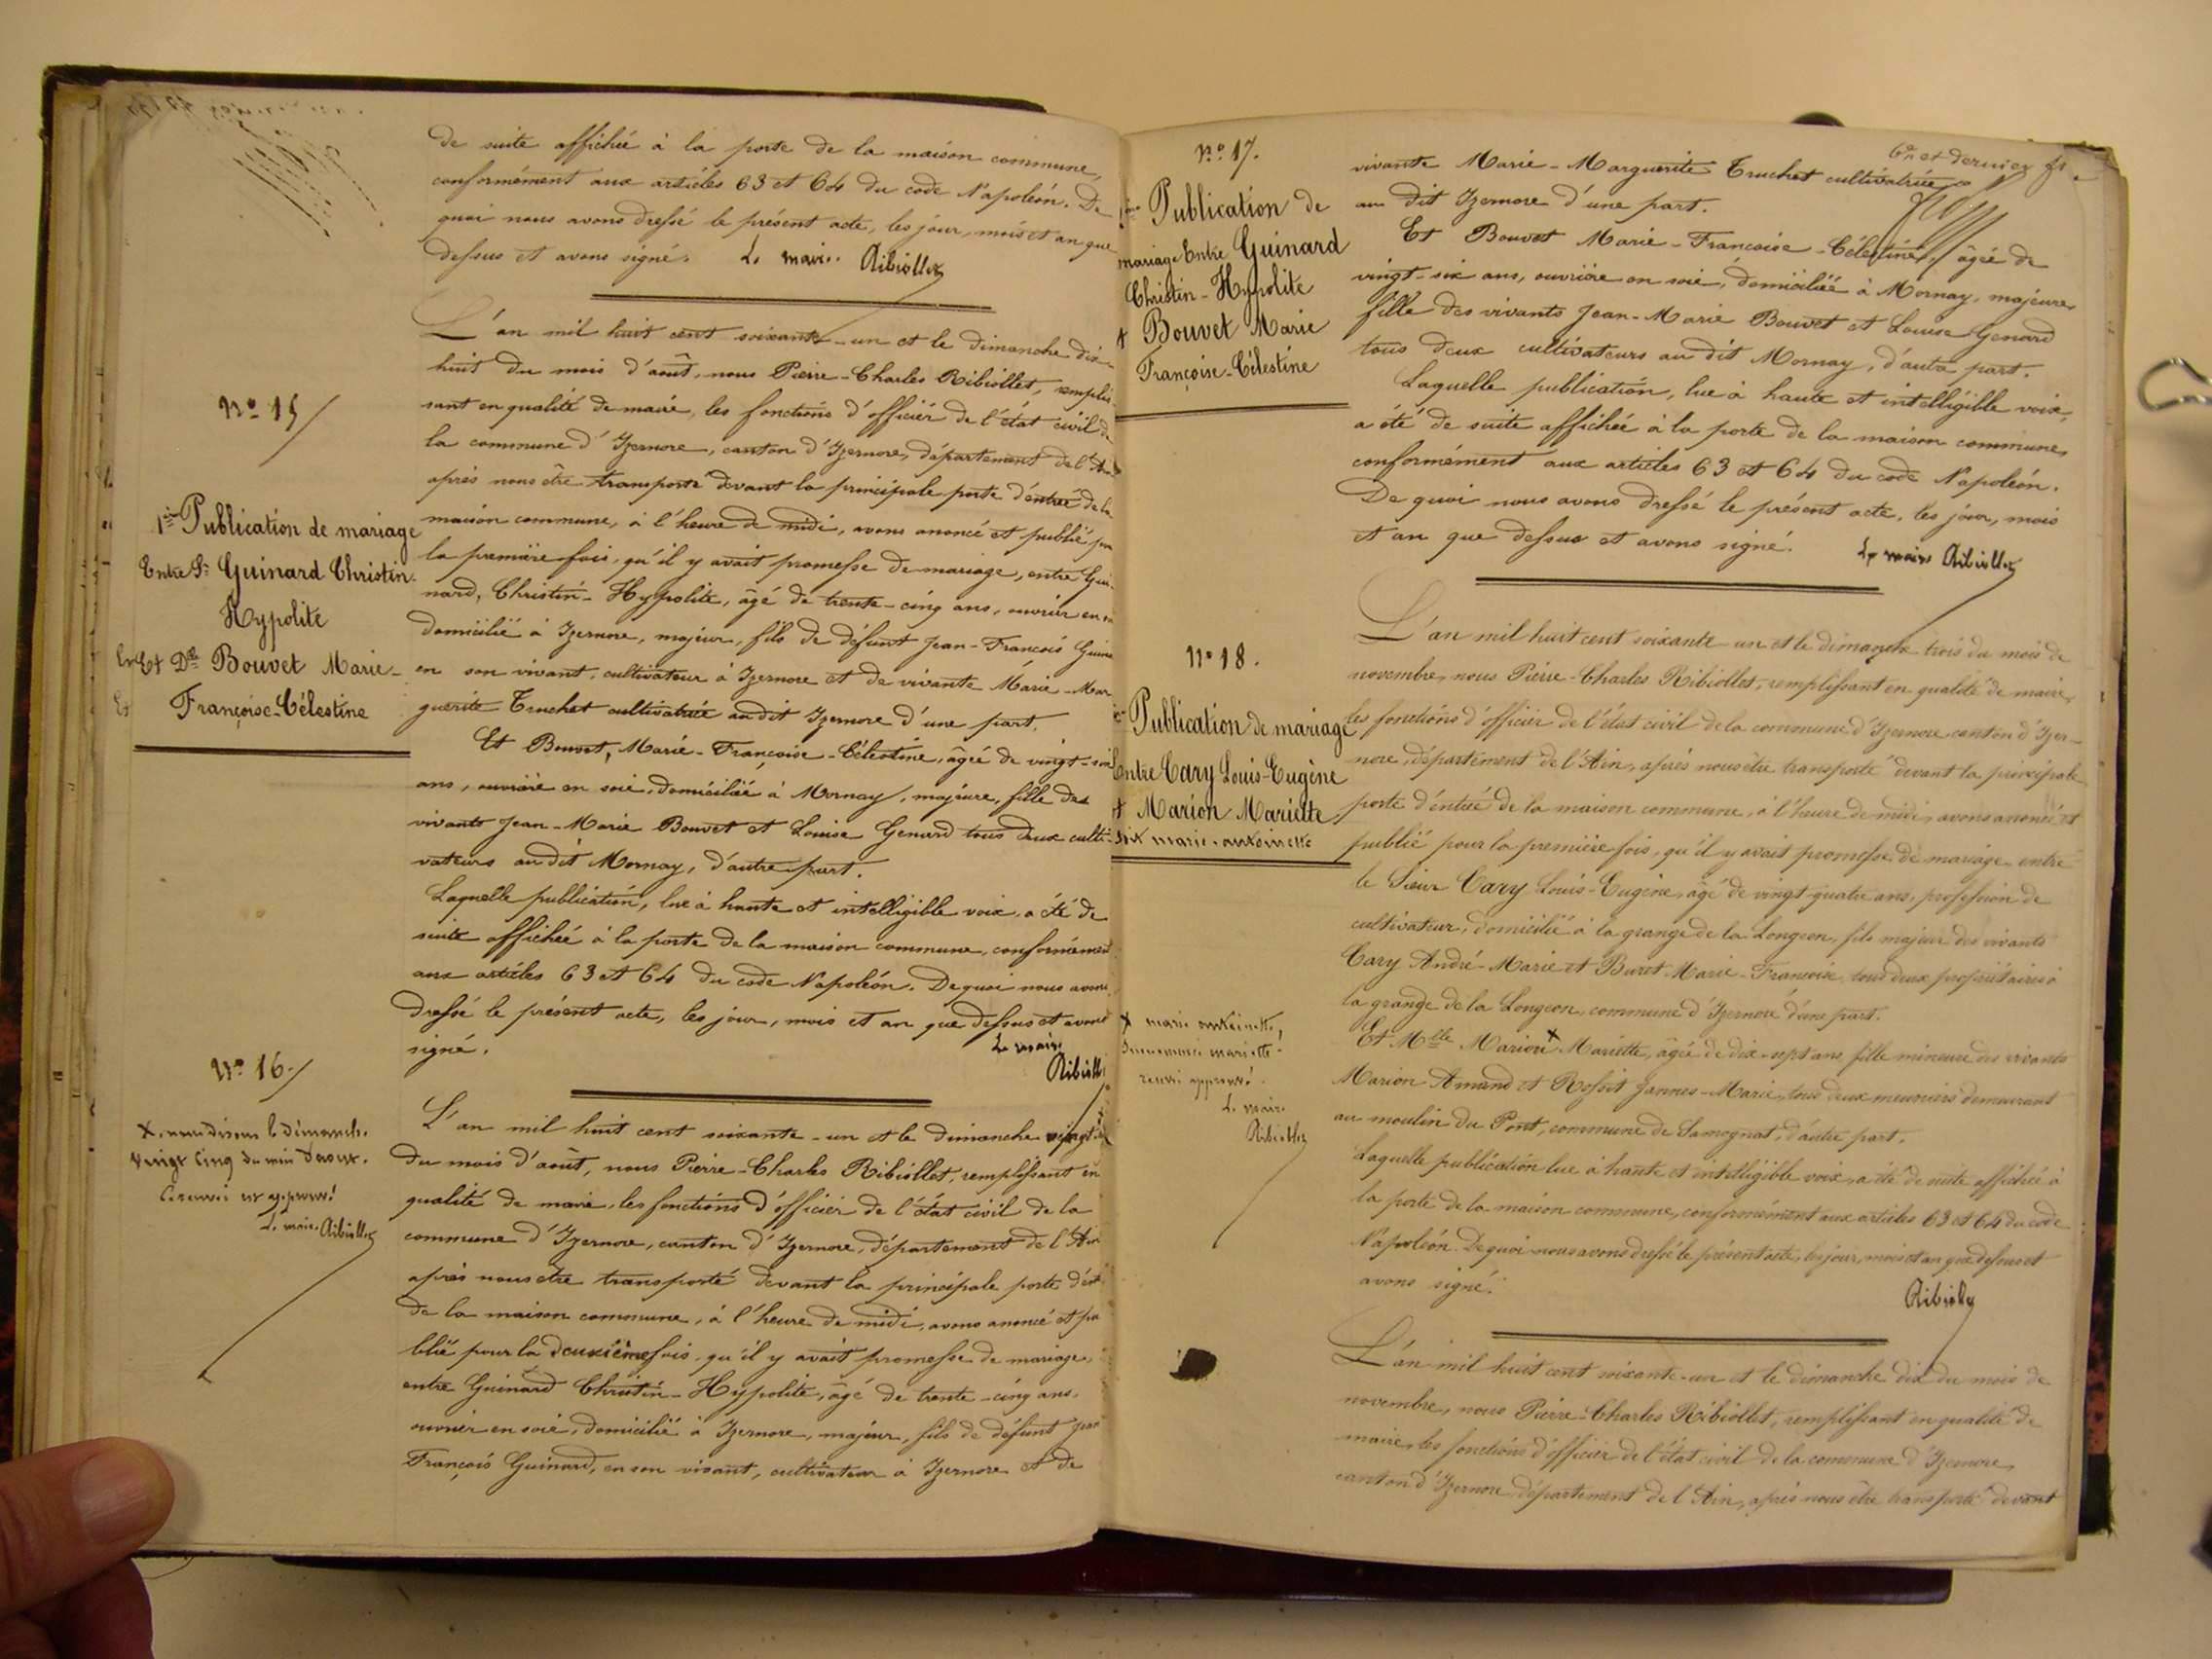 de suite affichée à la porte de la maison commune,
conformément aux articles 63 et 64 du code Napoléon. De
quoi nous avons dressé le présent acte, les jour, mois et an que
dessus et avons signé. Le maire Ribiollet
N° 15
1ère Publication de mariage
Entre Sr Guinard Christin
Hypolite
Et Dlle Bouvet Marie-
Françoise-Célestine
L'an mil huit cent soixante-un et le dimanche dix-
huit du mois d'août, nous Pierre-Charles Ribiollet, remplis-
sant en qualité de maire, les fonctions d'officier de l'état civil de
la commune d'Izernore, canton d'Izernore, département de l'Ain
après nous être transporté devant la principale porte d'entrée de la
maison commune, à l'heure de midi, avons anoncé et publié pr
la première fois, qu'il y avait promesse de mariage, entre Gui-
nard, Christin-Hypolite, âgé de trente-cinq ans, ouvrier en
domicilié à Izernore, majeur, fils de défunt Jean-François Guina
en son vivant, cultivateur à Izernore et de vivante Marie-Mar
guerite Truchet cultivatrice au dit Izernore d'une part.
Et Bouvet, Marie-Françoise-Célestine, âgée de vingt-six
ans, ouvrière en soie, domiciliée à Mornay, majeure, fille des
vivants Jean-Marie Bouvet et Louise Genard tous deux culti-
vateurs au dit Mornay, d'autre part.
Laquelle publication, lue à haute et intelligible voix, a été de
suite affichée à la porte de la maison commune, conformément
aux articles 63 et 64 du code Napoléon. De quoi nous avons
dressé le présent acte, les jour, mois et an que dessus et avons
signé. Le maire
Ribiollet
N° 16
X nous disons le dimanche
vingt cinq du mois d'aout.
le renvoi est approuvé
Le maire Ribiollet
L'an mil huit cent soixante-un et le dimanche vingt
du mois d'août, nous Pierre-Charles Ribiollet, remplissant en
qualité de maire, les fonctions d'officier de l'état civil de la
commune d'Izernore, canton d'Izernore, département de l'Ain
après nous être transporté devant la principale porte d'ent
de la maison commune, à l'heure de midi, avons anoncé et pu
blié pour la deuxième fois, qu'il y avait promesse de mariage,
entre Guinard Christin-Hypolite, âgé de trente-cinq ans,
ouvrier en soie, domicilié à Izernore, majeur, fils de défunt Jean
François Guinard, en son vivant, cultivateur à Izernore et de
N° 17.
Publication de
mariage Entre Guinard
Christin-Hypolite
et Bouvet Marie
Françoise-Célestine
6e et dernier ft
vivante Marie-Marguerite Truchet cultivatrice
au dit Izernore d'une part.
Et Bouvet Marie-Francoise-Célestine, âgée de
vingt-six ans, ouvrière en soie, domiciliée à Mornay, majeure,
fille des vivants Jean-Marie Bouvet et Louise Genard
tous deux cultivateurs au dit Mornay, d'autre part.
Laquelle publication, lue à haute et intelligible voix,
a été de suite affichée à la porte de la maison commune,
conformément aux articles 63 et 64 du code Napoléon.
De quoi nous avons dressé le présent acte, les jour, mois
et an que dessus et avons signé. Le maire Ribiollet
N° 18.
Publication de mariage
Entre Cary Louis-Eugène
et Marion Mariette
dit marie-antoinette
L'an mil huit cent soixante-un et le dimanche trois du mois de
novembre, nous Pierre-Charles Ribiollet, remplissant en qualité de maire,
les fonctions d'officier de l'état civil de la commune d'Izernore canton d'Izer-
nore, département de l'Ain, après nous être transporté devant la principale
porte d'entrée de la maison commune, à l'heure de midi, avons anoncé et
publié pour la première fois, qu'il y avait promesse de mariage entre
le Sieur Cary Louis-Eugène, âgé de vingt-quatre ans, profession de
cultivateur, domicilié à la grange de la Longeon, fils majeur des vivants
Cary André-Marie et Buret-Marie-Francoise tous deux propriétaires à
la grange de la Longeon, commune d'Izernore d'une part.
X marie antoinette,
renvoi approuvé
Le maire
Ribiollet
Et Mlle Marion X Mariette, âgée de dix-sept ans fille mineure des vivants
Marion Amand et Rossit Jannes-Marie, tous deux meuniers demeurant
au moulin du Pont, commune de Samognat, d'autre part.
Laquelle publication lue à haute et intelligible voix, a été de suite affichée à
la porte de la maison commune, conformément aux articles 63 et 64 du code
Napoléon. De quoi nous avons dressé le présent acte, les jour, mois et an que dessus et
avons signé. Ribiollet
L'an mil huit cent soixante-un et le dimanche dix du mois de
novembre, nous Pierre-Charles Ribiollet, remplissant en qualité de
maire, les fonctions d'officier de l'état civil de la commune d'Izernore,
canton d'Izernore département de l'Ain, après nous être transporté devant